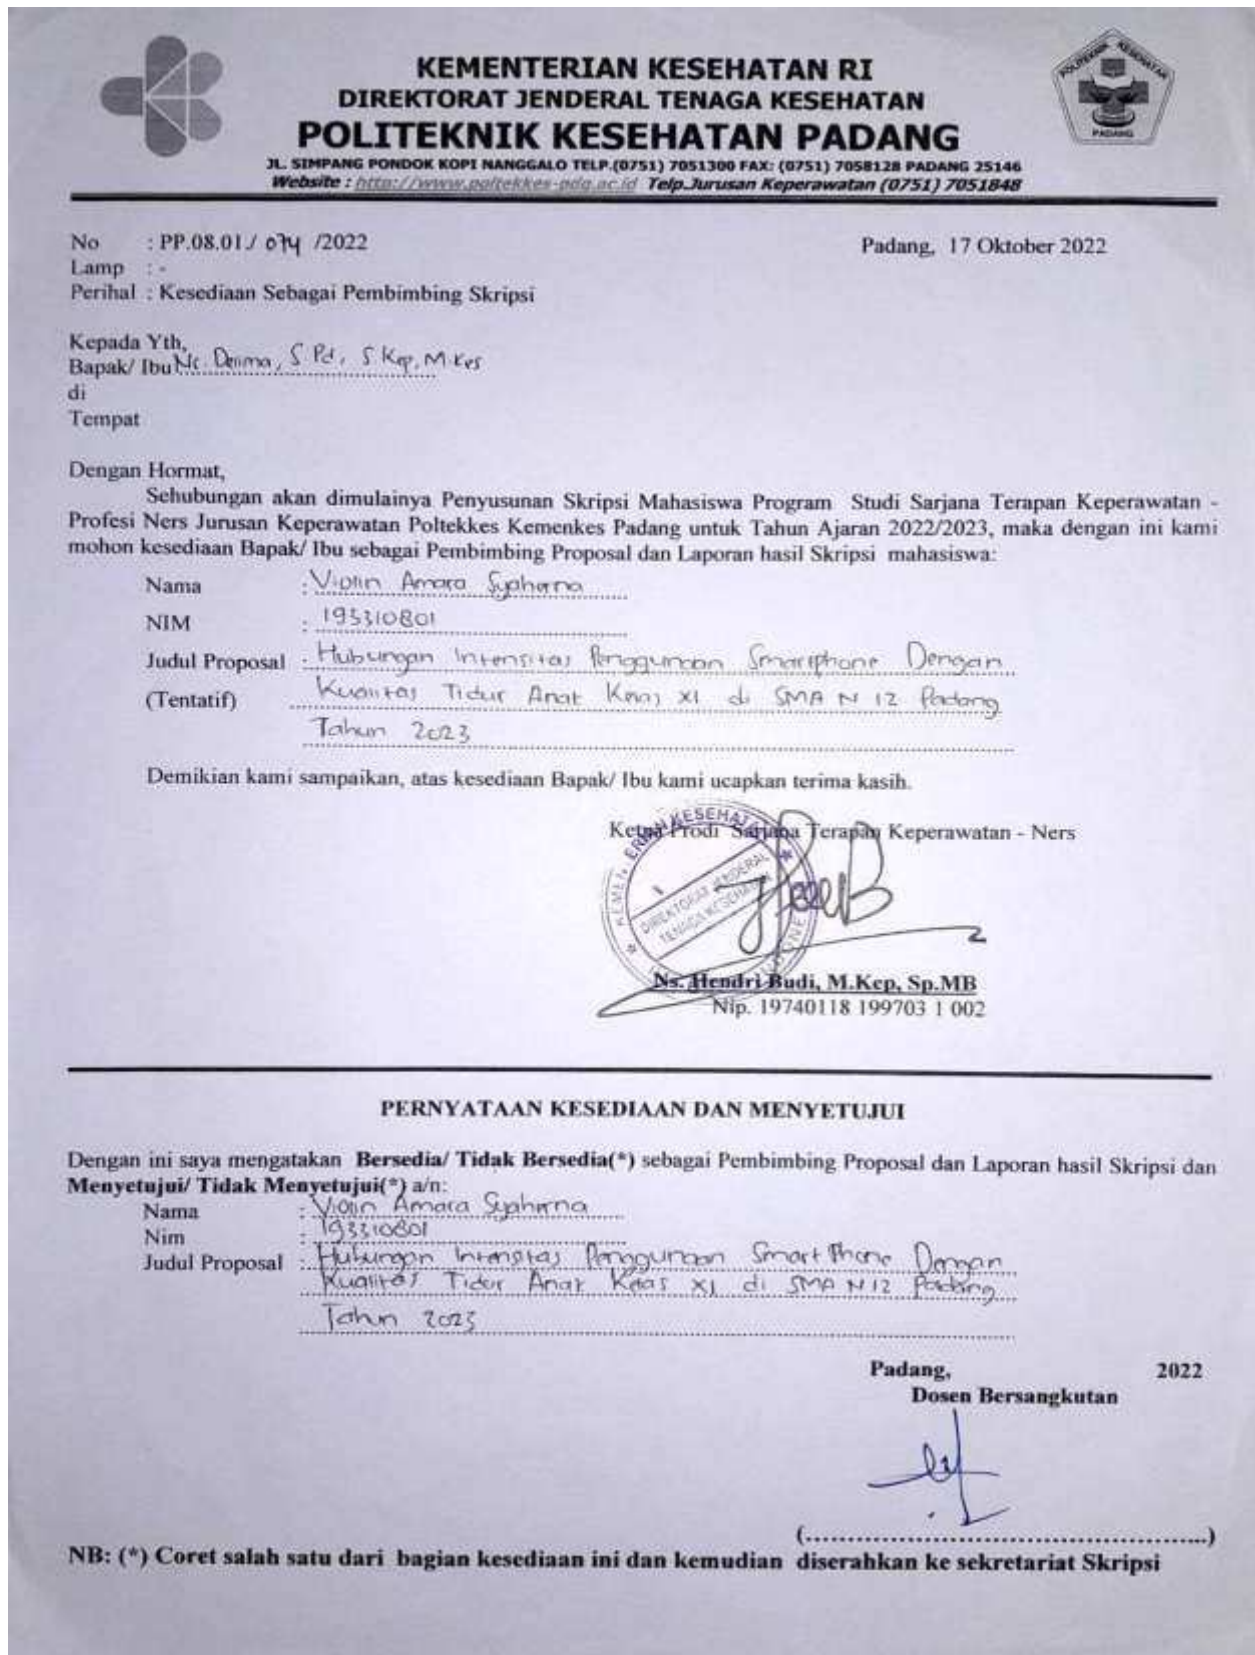 KEMENTERIAN KESEHATAN RI
DIREKTORAT JENDERAL TENAGA KESEHATAN
POLITEKNIK KESEHATAN PADANG
JL. SIMPANG PONDOK KOPI NANGGALO TELP.(0751) 7051300 FAX: (0751) 7058128 PADANG 25146
Website : http://www.poltekkes-pdg.ac.id Telp.Jurusan Keperawatan (0751) 7051848
POLITEKNIK KESEHATAN
PADANG
No : PP.08.01./ 074 /2022 Padang, 17 Oktober 2022
Lamp : -
Perihal : Kesediaan Sebagai Pembimbing Skripsi
Kepada Yth,
Bapak/ Ibu Ns. Delima, S.Pd, S.Kep, M.Kes
di
Tempat
Dengan Hormat,
Sehubungan akan dimulainya Penyusunan Skripsi Mahasiswa Program Studi Sarjana Terapan Keperawatan -
Profesi Ners Jurusan Keperawatan Poltekkes Kemenkes Padang untuk Tahun Ajaran 2022/2023, maka dengan ini kami
mohon kesediaan Bapak/ Ibu sebagai Pembimbing Proposal dan Laporan hasil Skripsi mahasiswa:
Nama : Violin Amara Syaherna
NIM : 193310801
Judul Proposal : Hubungan Intensitas Penggunaan Smartphone Dengan
(Tentatif) Kualitas Tidur Anak Kelas XI di SMA N 12 Padang
Tahun 2023
Demikian kami sampaikan, atas kesediaan Bapak/ Ibu kami ucapkan terima kasih.
Ketua Prodi Sarjana Terapan Keperawatan - Ners
DIREKTORAT JENDERAL
TENAGA KESEHATAN
Ns. Hendri Budi, M.Kep, Sp.MB
Nip. 19740118 199703 1 002
PERNYATAAN KESEDIAAN DAN MENYETUJUI
Dengan ini saya mengatakan Bersedia/ Tidak Bersedia(*) sebagai Pembimbing Proposal dan Laporan hasil Skripsi dan
Menyetujui/ Tidak Menyetujui(*) a/n:
Nama : Violin Amara Syaherna
Nim : 193310801
Judul Proposal : Hubungan Intensitas Penggunaan Smart Phone Dengan
Kualitas Tidur Anak Kelas XI di SMA N 12 Padang
Tahun 2023
Padang, 2022
Dosen Bersangkutan
(..........................................)
NB: (*) Coret salah satu dari bagian kesediaan ini dan kemudian diserahkan ke sekretariat Skripsi